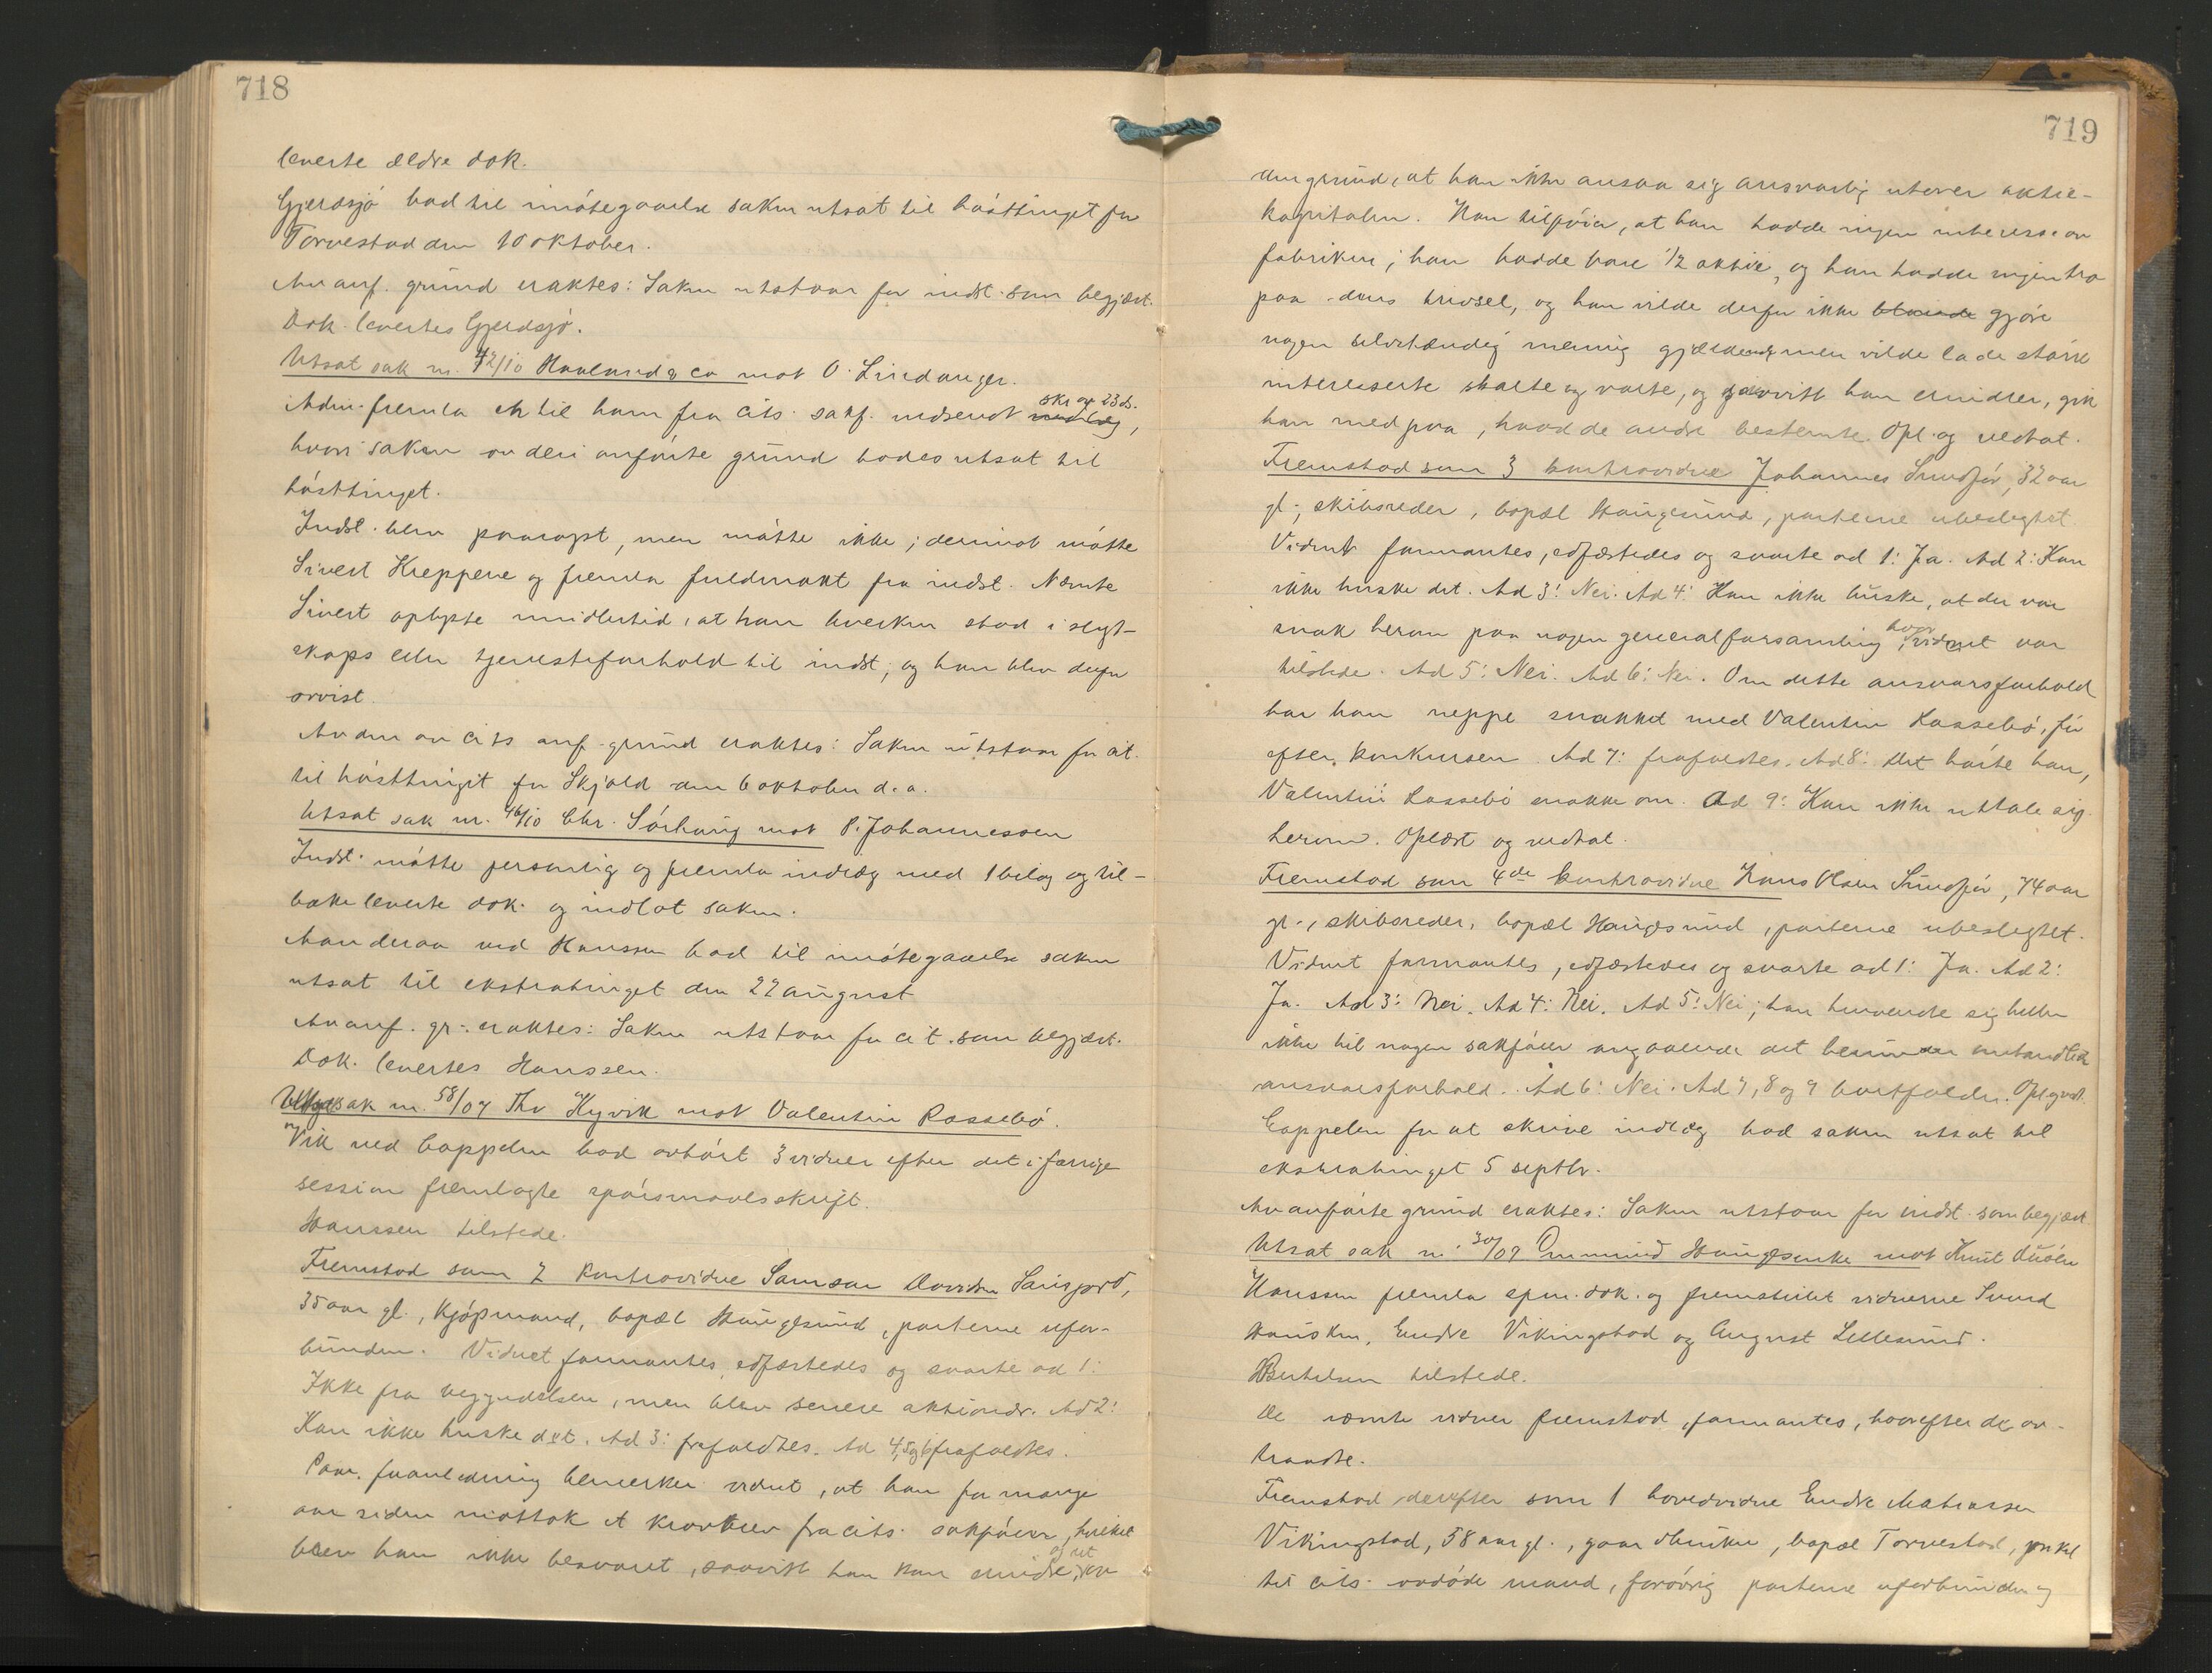 718
leverte ældre dok.
Gjerdsjö bad til imötegaaelse saken utsat til hösttinget for
Torvestad den 10 oktober.
Av anf. grund eraktes: Saken utstaar for indst. som begjært.
Dok. levertes Gjerdsjö.
Utsat sak nr. 42/10 Haaland & co mot O. Lindanger.
Adm. fremla et til ham fra cits. sakf. indsendt skr av 23 ds.,
hvori saken av deri anförte grund bades utsat til
hösttinget.
Indst. blev paaropt, men mötte ikke; derimot mötte
Sivert Kreppene og fremla fuldmakt fra indst. Nævnte
Sivert oplyste imidlertid, at han hverken stod i slegt-
skaps eller tjenesteforhold til indst, og han blev derfor
avvist.
Av den av cits anf. grund eraktes: Saken utstaar for cit.
til hösttinget for Skjold den 6 oktober d.a.
Utsat sak nr. 46/10 Chr. Sörhaug mot P. Johannessen
Indst. mötte personlig og fremla indlæg med 1 bilag og til-
bakeleverte dok. og indlot saken.
Manderaa ved Hanssen bad til imötegaaelse saken
utsat til ekstratinget den 22 august
Av anf. gr. eraktes: Saken utstaar for cit. som begjært.
Dok. levertes Hanssen.
sak nr. 58/07 Thv Hyvik mot Valentin Rossebö.
Vik ved Coppelen bad avhört 3 vidner efter det i forrige
session fremlagte spörsmaalsskrift.
Hanssen tilstede.
Fremstod som 2 kontravidne Samson Davidsen
35 aar gl., kjöpmand, bopæl Haugesund, parterne ufor-
bunden. Vidnet formantes, edfæstedes og svarte ad 1:
Ikke fra begyndelsen, men blev senere aktionær. Ad 2:
Kan ikke huske det. Ad 3: frafaldtes. Ad 4, 5 og 6 frafaldtes.
Paa foranledning bemerker vidnet, at han for mange
aar siden mottok et kravbrev fra cits. sakförer, hvilket
brev han ikke besvaret, saavitt han kan erindre, og ut av
719
den grund, at han ikke ansaa sig ansvarlig utover aktie-
kapitalen. Han tilföier, at han hadde ingen interesse av
fabriken; han hadde bare 1/2 aktie, og han hadde ingen tro
paa dens trivsel, og han vilde derfor ikke gjöre
nogen selvstændig mening gjældende, men vilde la de större
interesserte skalte og valte, og saavitt han erindrer, gik
han med paa, hvad de andre bestemte. Opl. og vedtat.
Fremstod som 3 kontravidne Johannes Sundför, 32 aar
gl., skibsreder, bopæl Haugesund, parterne ubeslegtet.
Vidnet formantes, edfæstedes og svarte ad 1: Ja. Ad 2: Kan
ikke huske det. Ad 3: Nei. Ad 4: Kan ikke huske, at der var
snak herom paa nogen generalforsamling, hvor vidnet var
tilstede. Ad 5: Nei. Ad 6: Nei. Om dette ansvarsforhold
har han neppe snakket med Valentin Rossebö, för
efter konkursen. Ad 7: frafaldtes. Ad 8: Det hörte han,
Valentin Rossebö snakke om. Ad 9: Kan ikke uttale sig
herom. Oplæst og vedtat.
Fremstod som 4de kontravidne Hans Olsen Sundför, 74 aar
gl., skibsreder, bopæl Haugesund, parterne ubeslegtet.
Vidnet formantes, edfæstedes og svarte ad 1: Ja. Ad 2:
Ja. Ad 3: Nei. Ad 4: Nei. Ad 5: Nei; han henvendte sig heller
ikke til nogen sakförer angaaende det omhandlede
ansvarsforhold. Ad 6: Nei. Ad 7, 8 og 9 bortfalder. Opl. og vedt.
Coppelen for at skrive indlæg bad saken utsat til
ekstratinget 5 septbr.
Av anförte grund eraktes: Saken utstaar for indst. som begjært.
Utsat sak nr. 30/09 Ommund Haugesenke mot Knut
Hanssen fremla spm. dok. og fremstillet vidnerne Svend
Endre Vikingstad og August Lillesund.
Bertelsen tilstede.
De nævnte vidner fremstod, formantes, hvorefter de av-
traadte.
Fremstod derefter som 1 hovedvidne Endre Mathiassen
Vikingstad, 58 aar gl., gaardbruker, bopæl Torvestad, onkel
til cits. avdöde mand, forövrig parterne uforbunden og